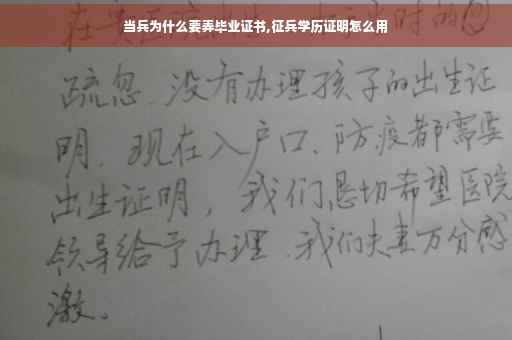 当兵为什么要弄毕业证书,征兵学历证明怎么用
疏忽、没有办理孩子的出生证
明、现在入户口、防疫都需要
出生证明，我们恳切希望医院
领导给予办理、我们夫妻万分感
激。